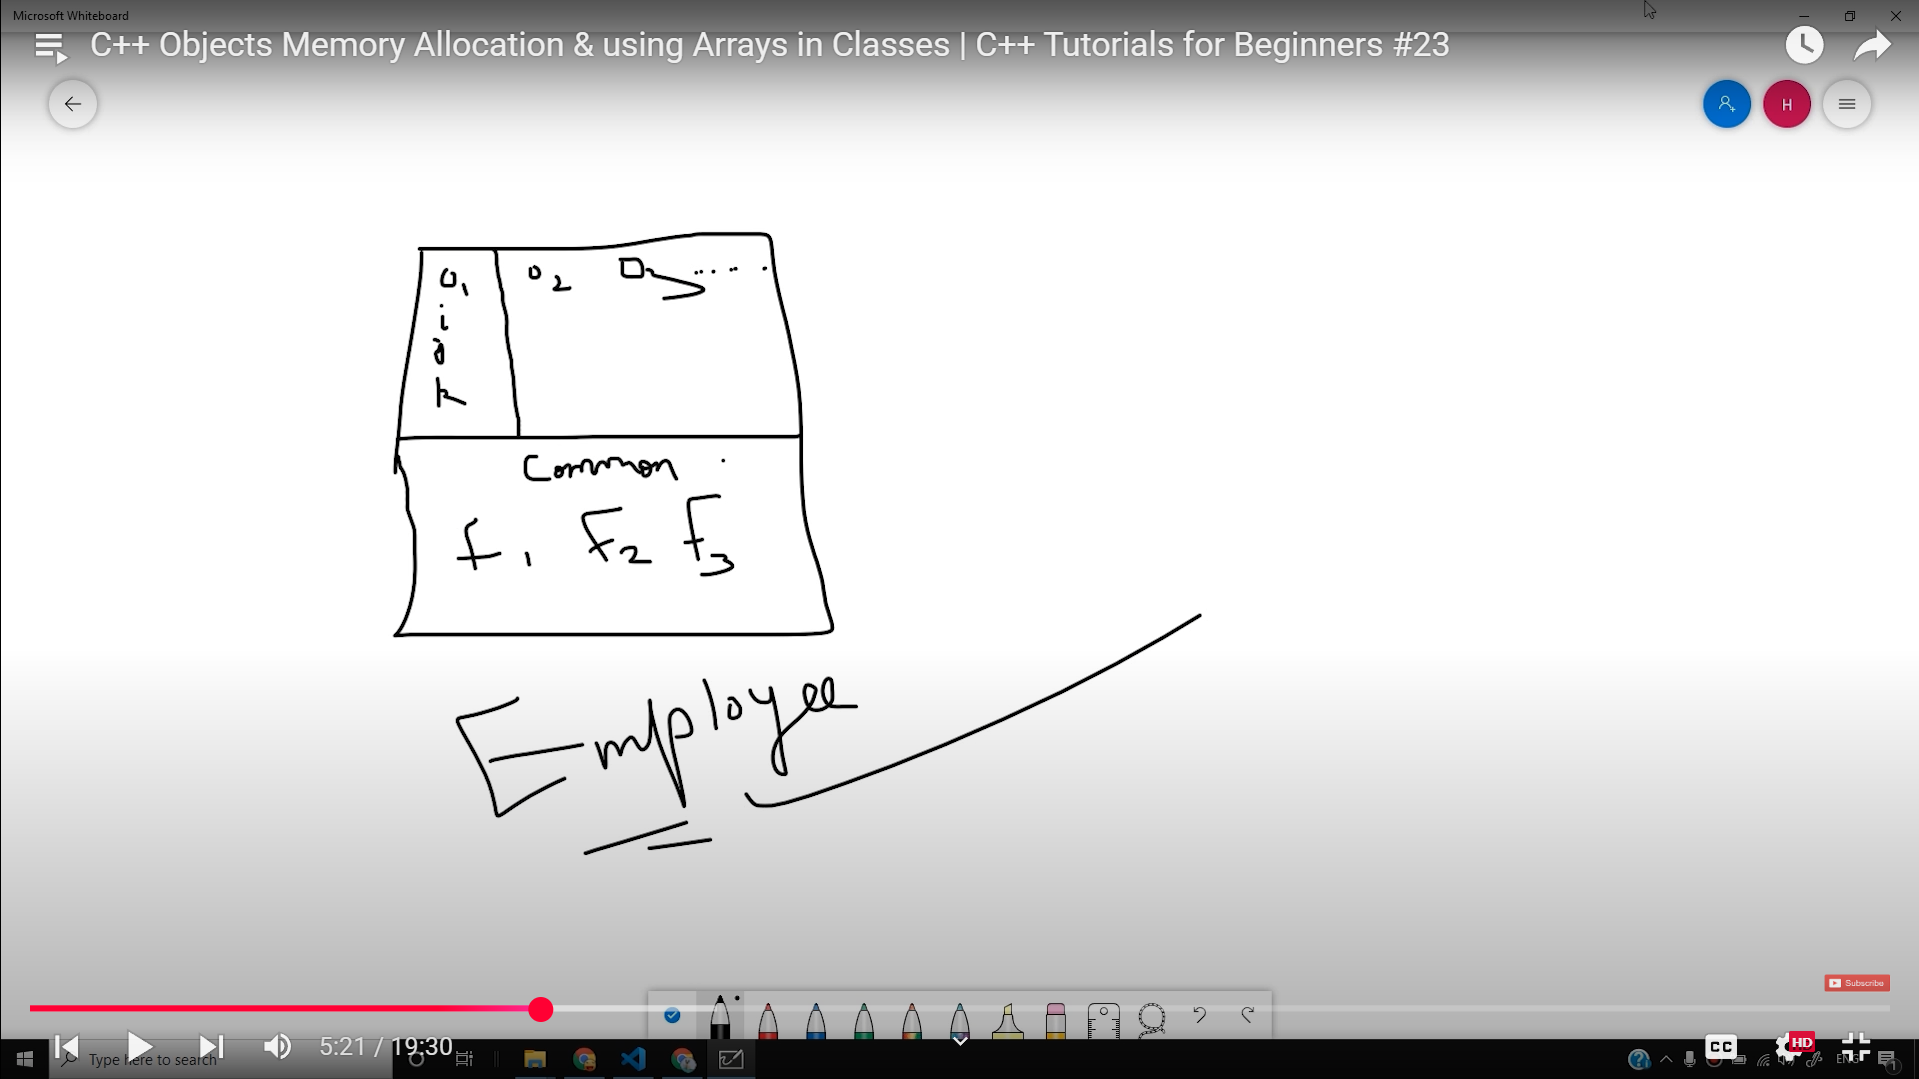 Microsoft Whiteboard
C++ Objects Memory Allocation & using Arrays in Classes | C++ Tutorials for Beginners #23
H
O1 O2 O3 ......
i
j
k
Common
f1 F2 F3
Employee
Subscribe
5:21 / 19:30
CC
HD
Type here to search
ENG
1